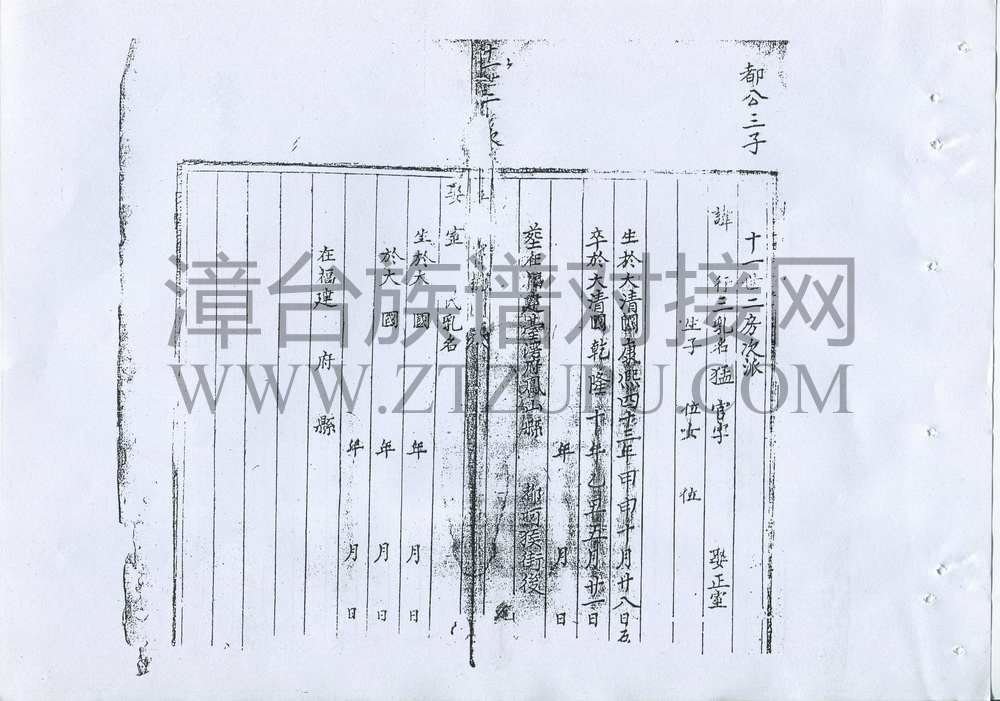 都公三子
十一世二房次派
諱 行三乳名猛 官字 娶正室
生子 位女 位
生於大清國康熙四十三年甲申十月廿八日
卒於大清國乾隆十年乙丑五月廿一日
年 月 日
葬在福建臺灣府鳳山縣 街後
十一世
娶 室 氏乳名
生於大 國 年 月 日
於大 國 年 月 日
年 月 日
在福建 府 縣
漳台族谱对接网
WWW.ZTZUPU.COM